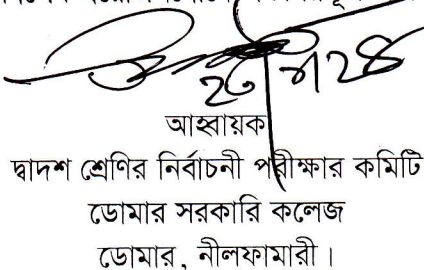 আহ্বায়ক
দ্বাদশ শ্রেণির নির্বাচনী পরীক্ষার কমিটি
ডোমার সরকারি কলেজ
ডোমার, নীলফামারী।